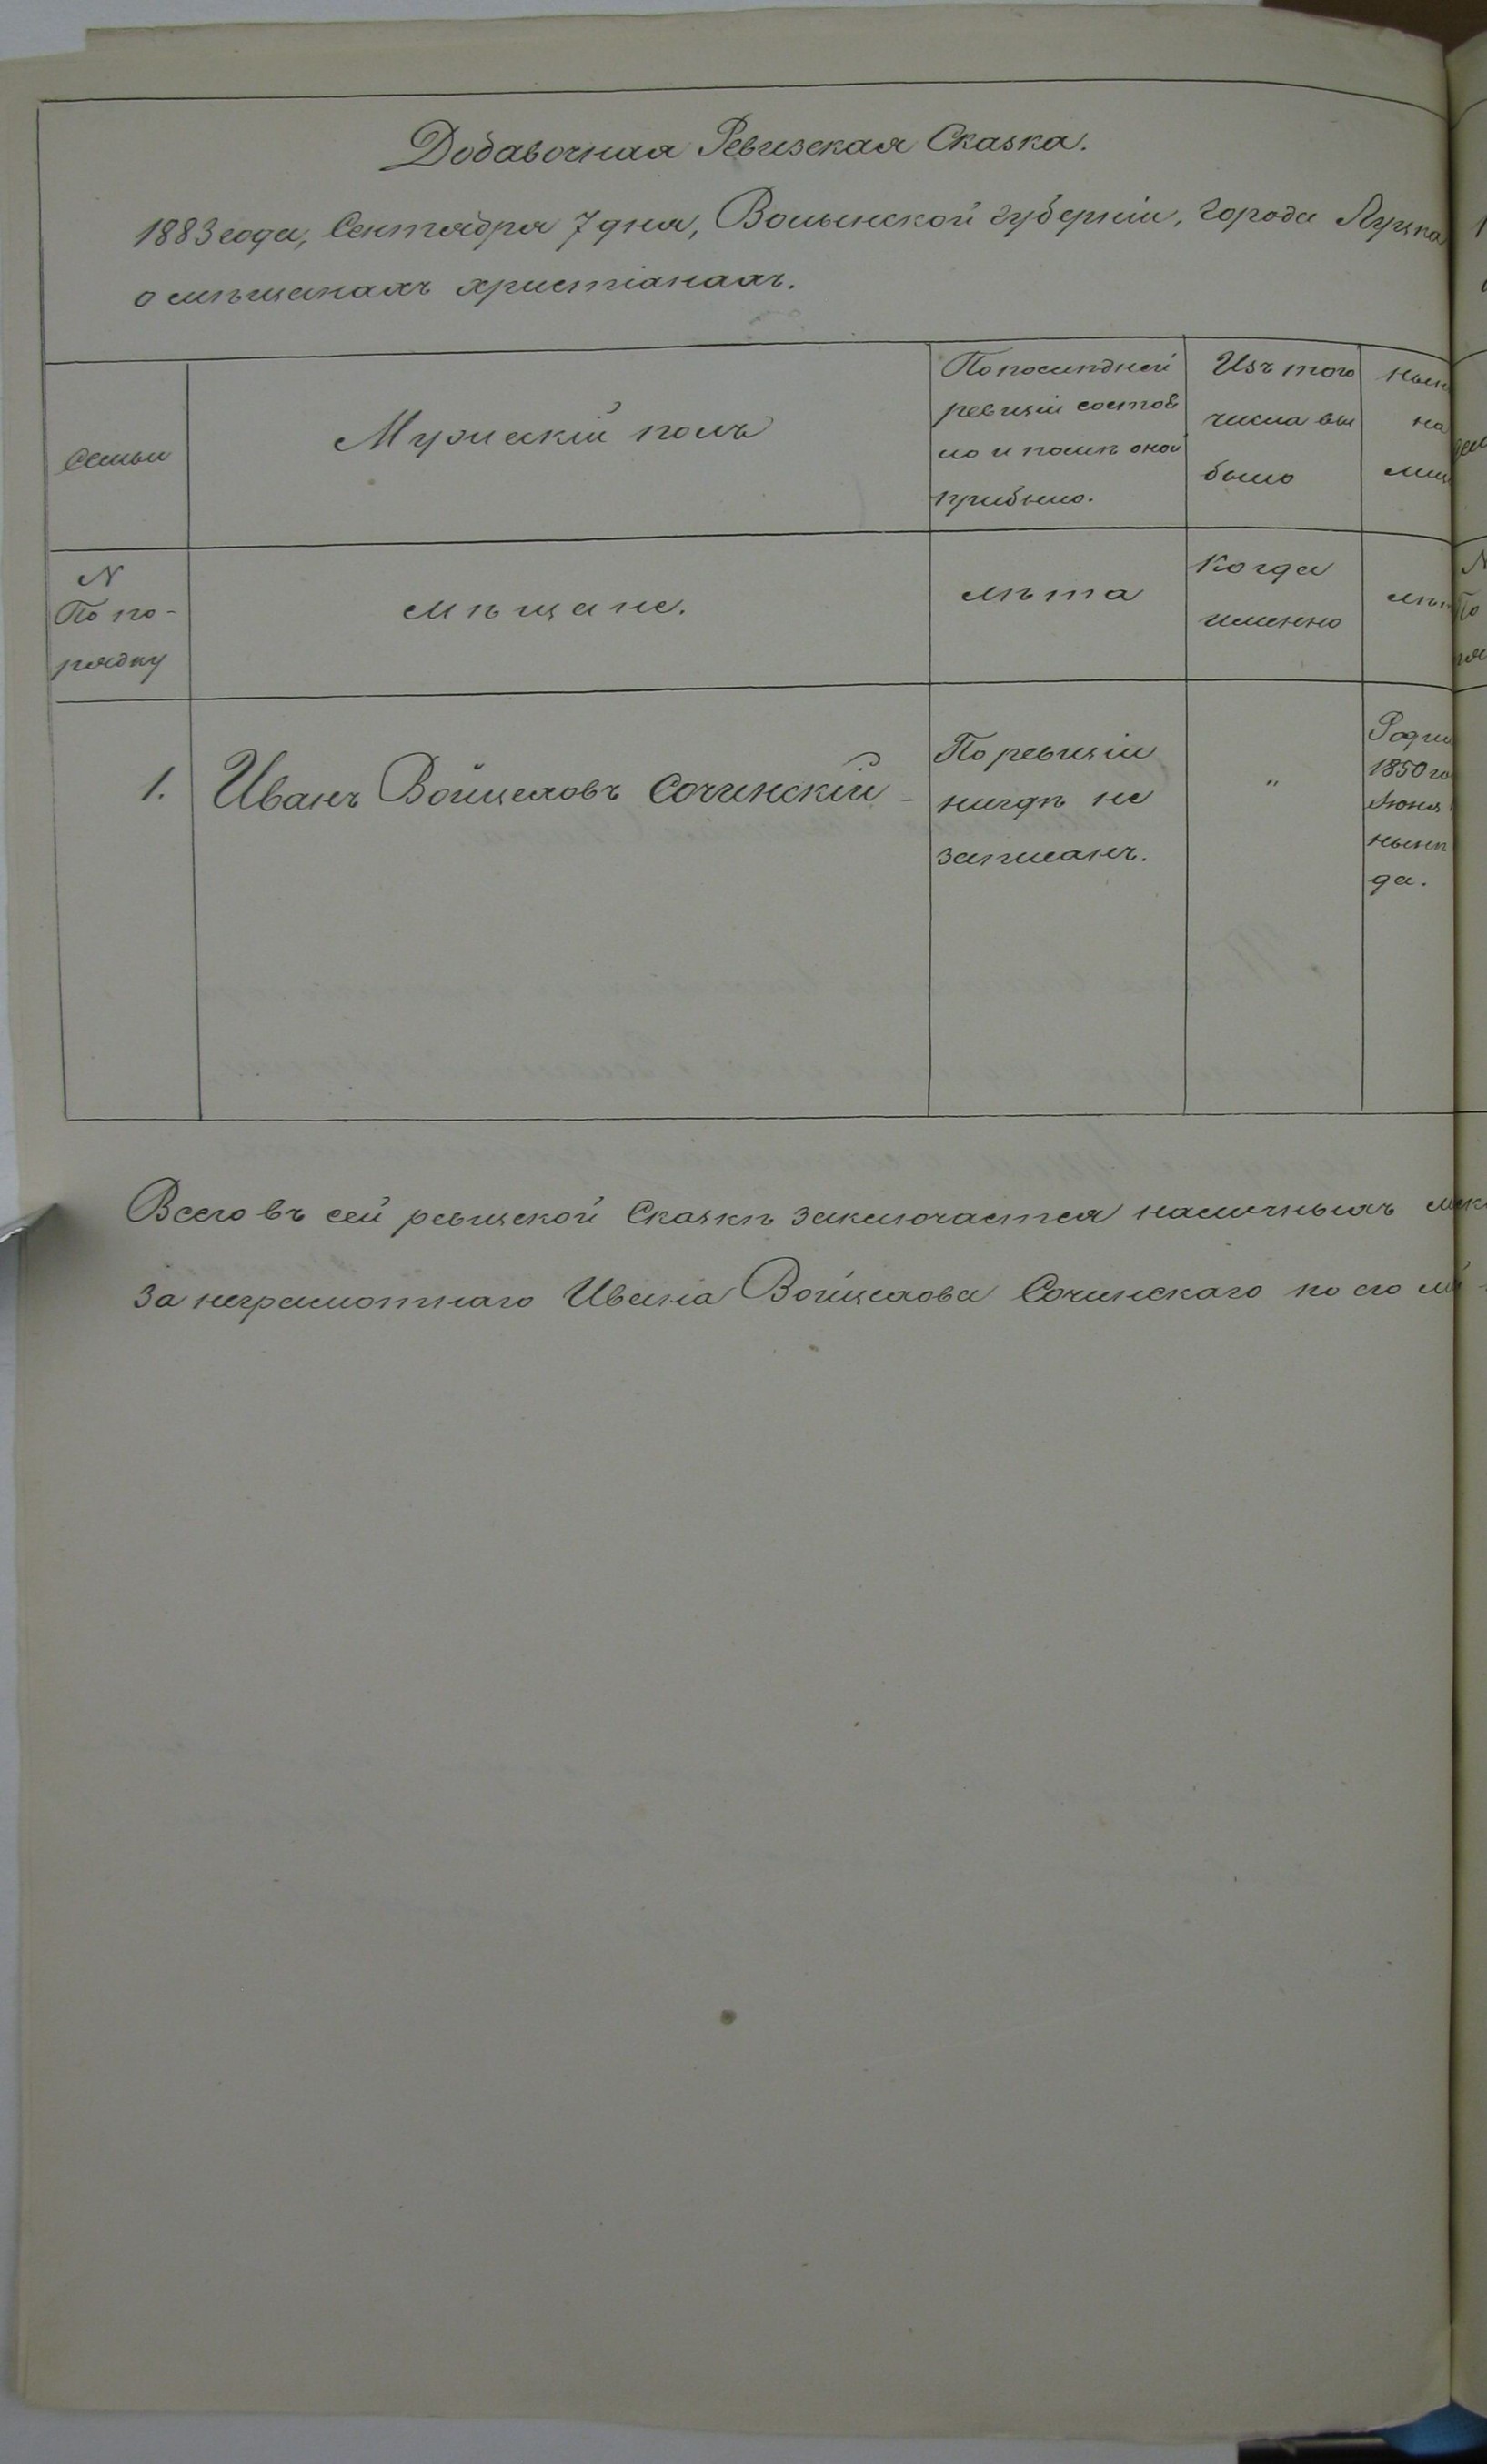 Добавочная Ревизская Сказка.
1883 года, Сентября 7 дня, Волынской губерніи, города Луцка
о мѣщанахъ христіанахъ.
Семьи
Мужескій полъ
По послѣдней
ревизіи состоя
ло и послѣ оной
прибыло.
Изъ того
числа вы
было
нын
на
лиц
N
По по-
рядку
мѣщане.
лѣта
Когда
именно
лѣт
1.
Иванъ Войцеховъ Сочинскій
По ревизіи
нигдѣ не
записанъ.
"
Роди
1850 го
Іюня
нынѣ
да.
Всего въ сей ревизской Сказкѣ заключается наличныхъ
за неграмотнаго Ивана Войцехова Сочинскаго по его